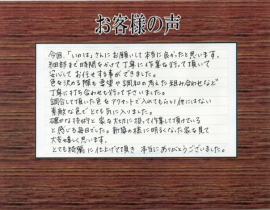 お客様の声
今回、「いのは」さんにお願いして本当に良かったと思います。
細部まで時間をかけて丁寧に作業を行って頂いて
安心してお任せする事ができました。
色を決める際も希望や調和の考えた組み合わせなど
丁寧に打ち合わせも行って下さいました。
調合して頂いた色をアクセントで入れてもらい他にはない
素敵な色でとても気に入りました。
確かな技術と家を大切に扱って作業して頂けている
と感じる毎日でした。新築の様に明るくなった家を見て
大変嬉しく思います。
とても綺麗に仕上げて頂き本当にありがとうございました。